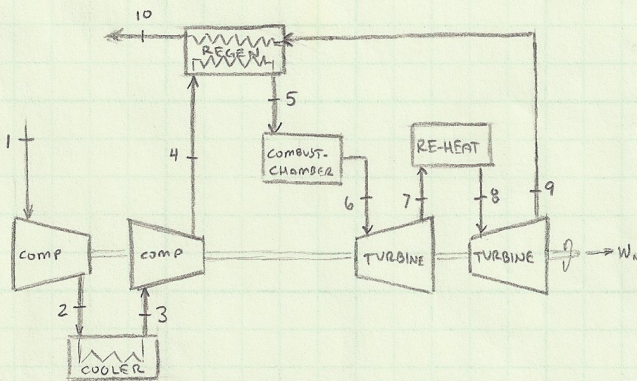 10
REGEN
1
4
5
COMBUST-
CHAMBER
RE-HEAT
6
7
8
9
COMP
COMP
TURBINE
TURBINE
2
3
COOLER